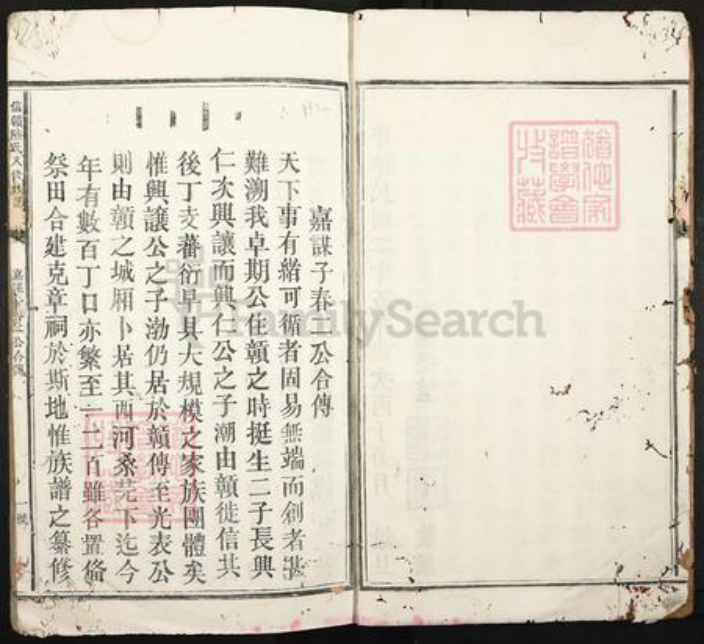 嘉謀子春二公合傳
天下事有緒可循者固易無端而創者甚
難溯我卓期公住贛之時挺生二子長興
仁次興讓而興仁公之子潮由贛徙信其
後丁支蕃衍早具大規模之家族團體矣
惟興讓公之子渤仍居於贛傳至光表公
則由贛之城厢卜居其西河桑芫下迄今
年有數百丁口亦繁至一二百雖各置俻
祭田合建克章祠於斯地惟族譜之纂修
嘉謀子春二公合傳
一號
FamilySearch